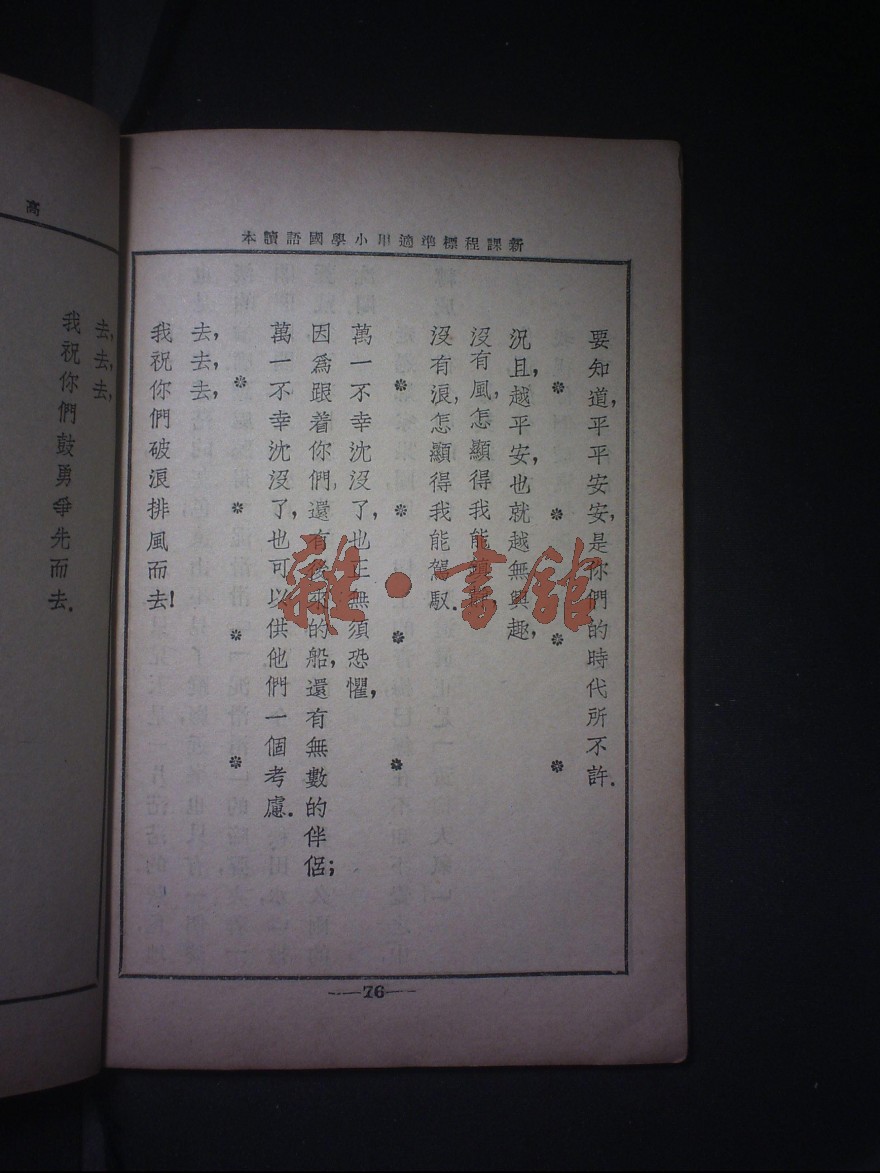 新課程標準適用小學國語讀本
要知道,平平安安,是你們的時代所不許.
況且,越平安,也就越無興趣,
沒有風,怎顯得我能
沒有浪,怎顯得我能駕馭.
萬一不幸沈沒了,也正無須恐懼,
因爲跟着你們,還有後來的船,還有無數的伴侶;
萬一不幸沈沒了,也可以供他們一個考慮.
去,去,去,
我祝你們破浪排風而去!
—76—
雜·書館
高
去,去,去,
我祝你們鼓勇爭先而去.